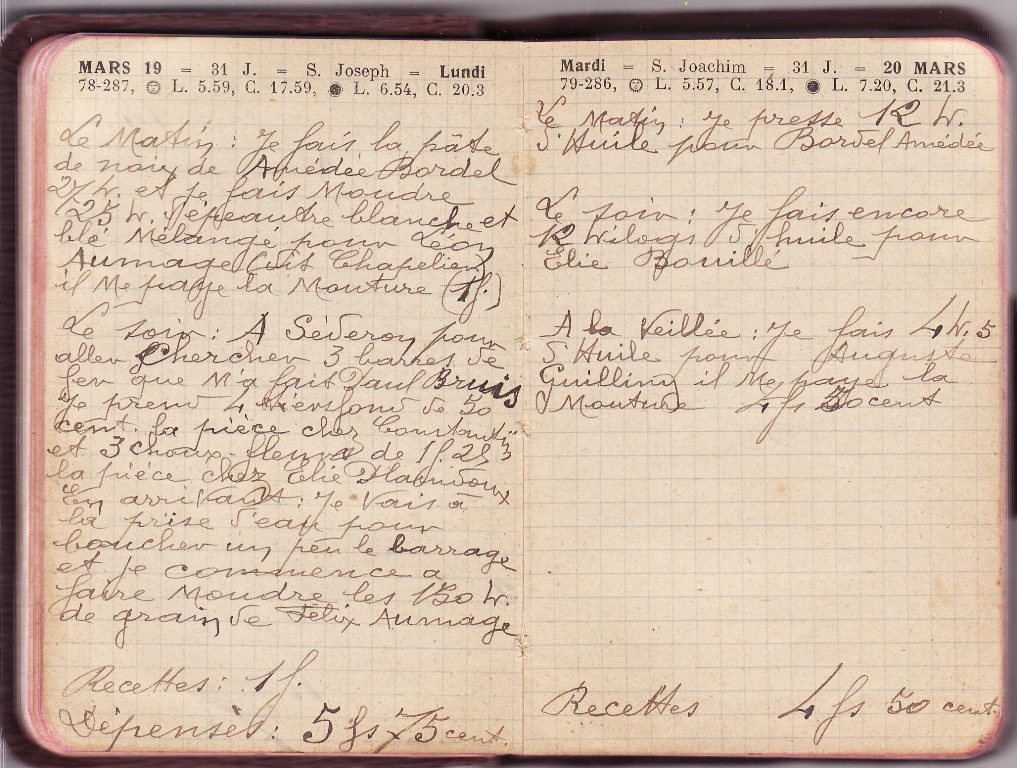 MARS 19 = 31 J. = S. Joseph = Lundi
78-287, L. 5.59, C. 17.59, L. 6.54, C. 20.3
Le Matin : Je fais la pâte
de noix de Amédée Bordel
et je fais Moudre
25 k. d'épeautre blanche et
blé Mélangé pour Léon
Aumage (dit Chapelier)
il Me paye la Mouture (1f.)
Le soir : A Séderon pour
aller Chercher 3 barres de
fer que M'a fait Paul Bruis
Je prend 4 de 50
cent. la pièce chez Constantin
et 3 choux-fleurs de 1f. 25
la pièce chez Elie
En arrivant : Je Vais à
la prise d'eau pour
boucher un peu le barrage
et je commence a
faire Moudre les 150 k.
de grain de Félix Aumage
Recettes : 1f.
Dépenses : 5 fs 75 cent.
Mardi = S. Joachim = 31 J. = 20 MARS
79-286, L. 5.57, C. 18.1, L. 7.20, C. 21.3
Le Matin : Je presse 12 k.
d'Huile pour Bordel Amédée
Le soir : Je fais encore
12 kilogs d'huile pour
Elie Bouillé
A la Veillée : Je fais 4 k. 5
d'Huile pour Auguste
Guillini il Me paye la
Mouture 4 fs 50 cent
Recettes 4 fs 50 cent.